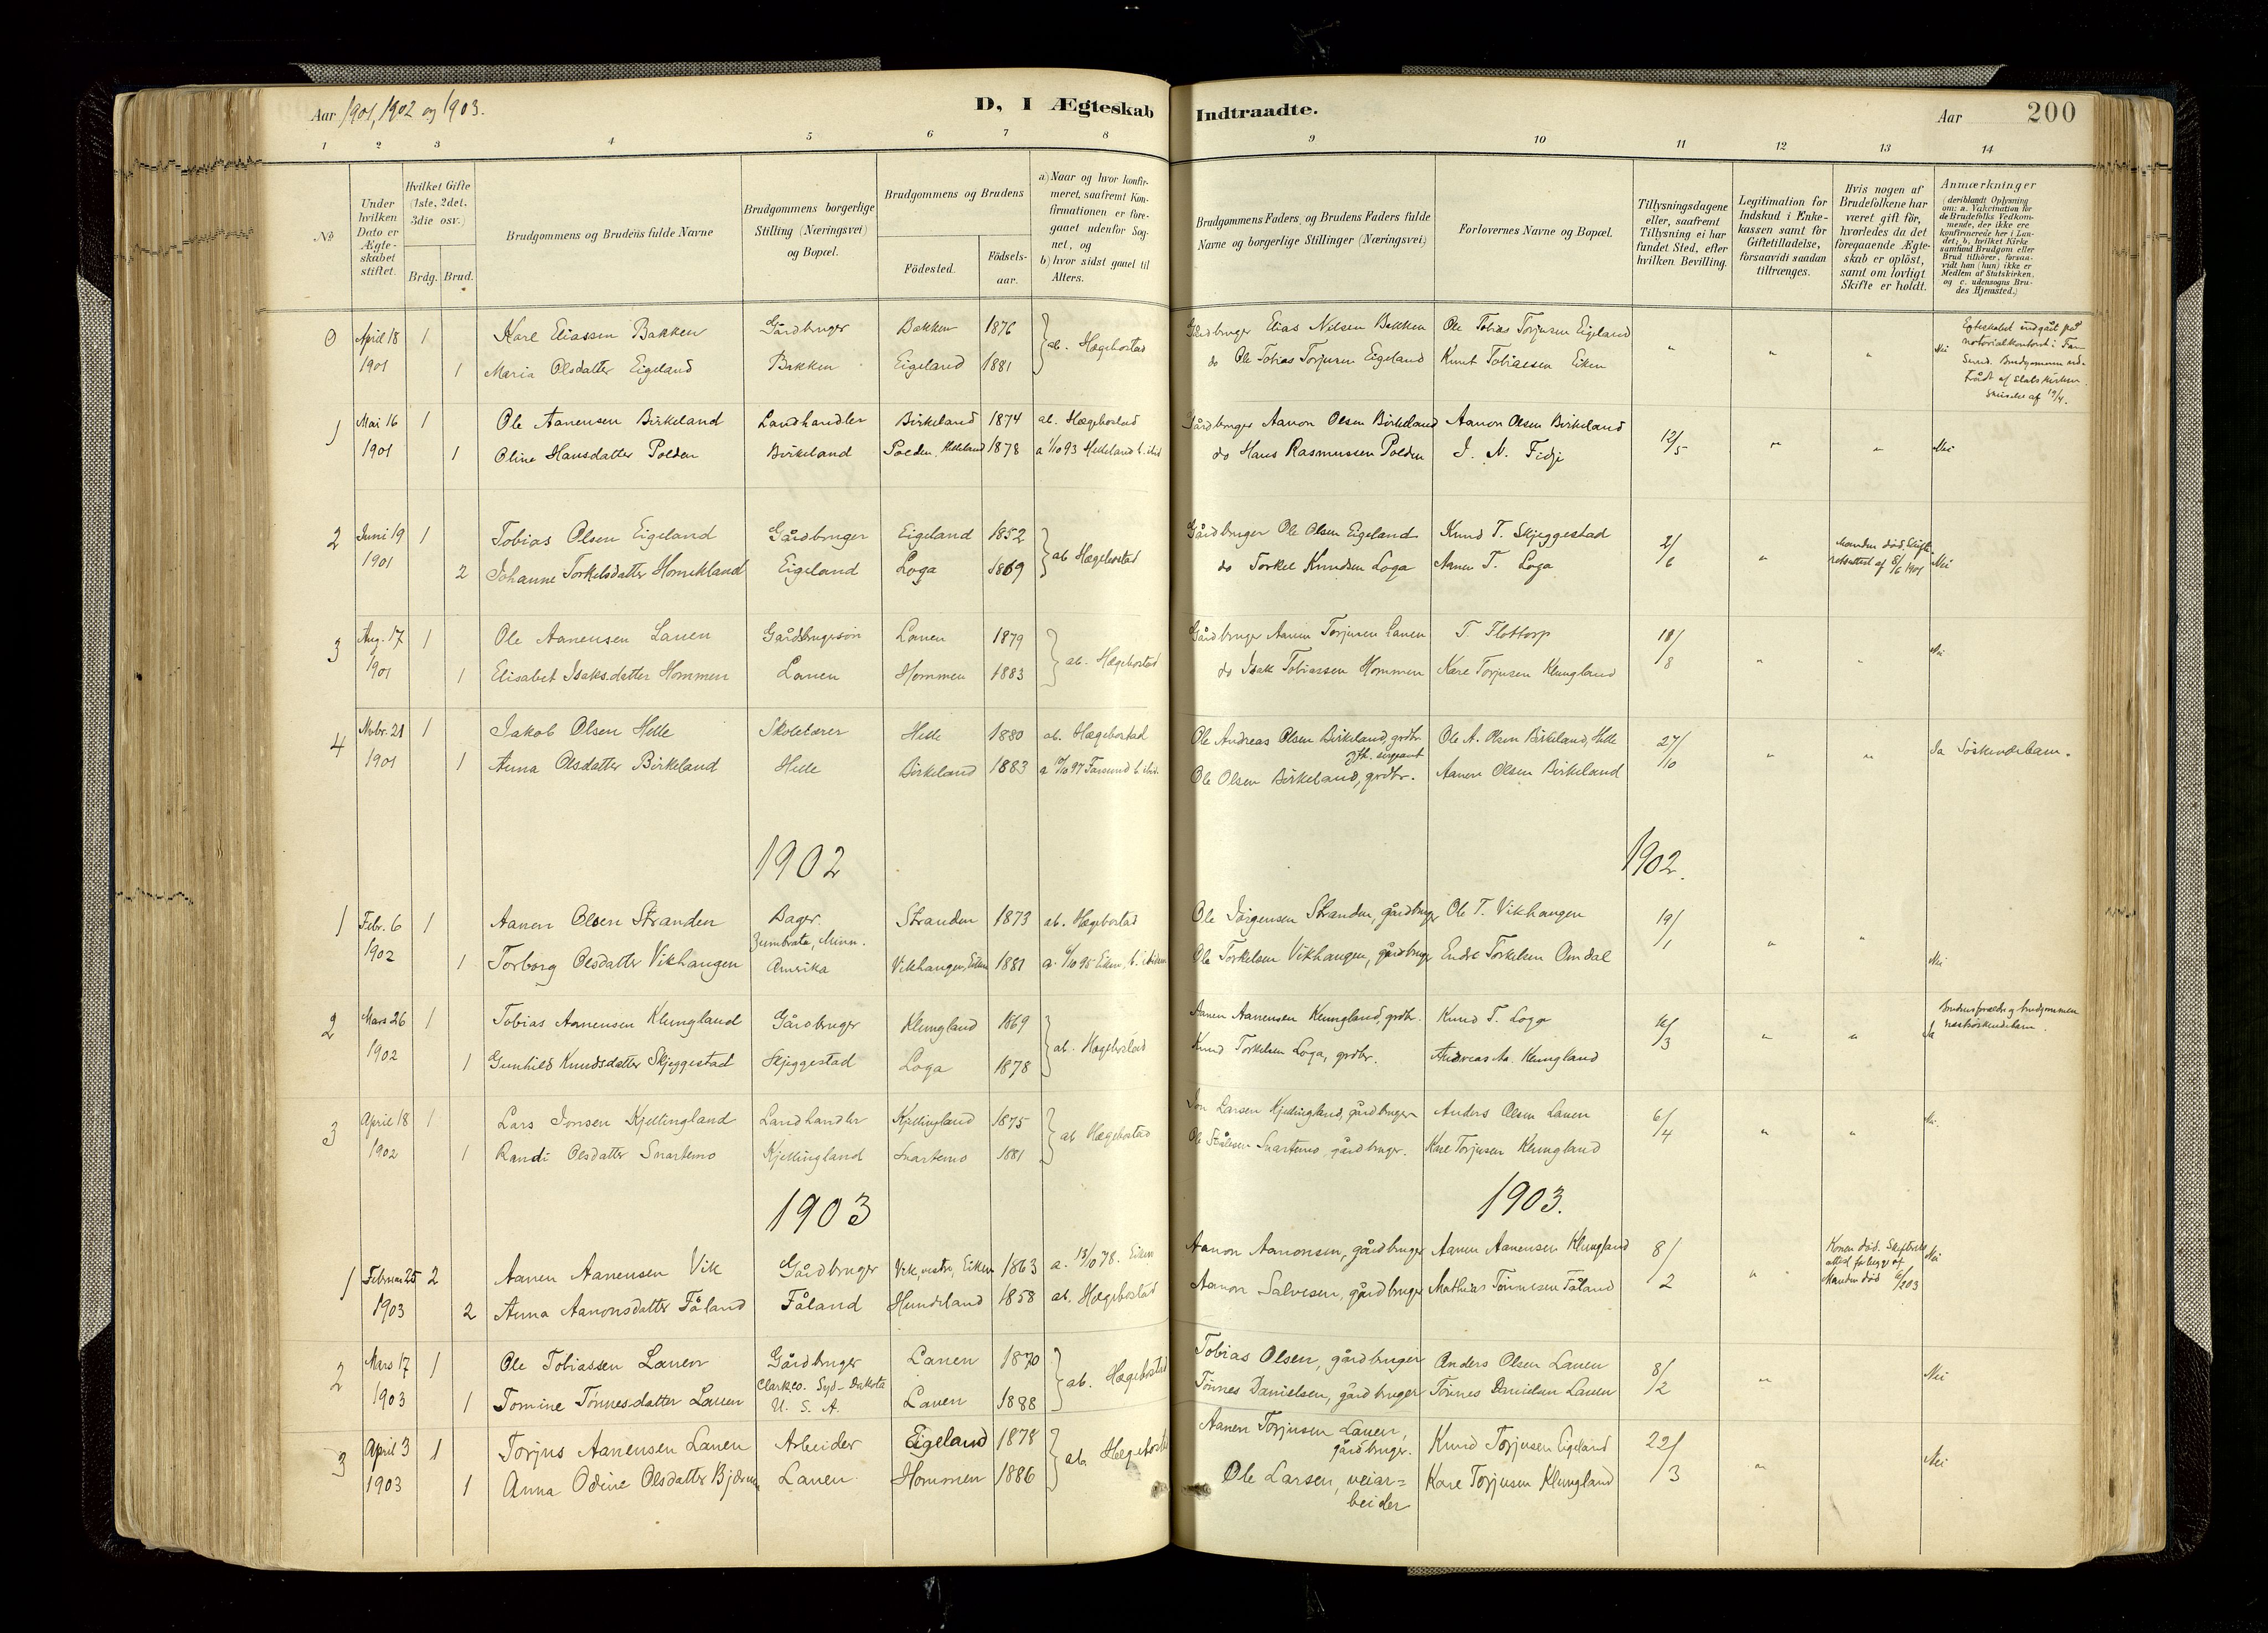 Aar 1901, 1902 og 1903.
D, I Ægteskab Indtraadte.
Aar 200
1 2 3 4 5 6 7 8 9 10 11 12 13 14
No
Under hvilken Dato er Ægteskabet stiftet.
Hvilket Gifte (1ste, 2det, 3die osv.)
Brdg. Brud.
Brudgommens og Brudens fulde Navne
Brudgommens borgerlige Stilling (Næringsvei) og Bopæl.
Brudgommens og Brudens
Födested.
Födsels-aar.
a) Naar og hvor konfirmeret, saafremt Konfirmationen er foregaaet udenfor Sognet, og
b) hvor sidst gaaet til Alters.
Brudgommens Faders, og Brudens Faders fulde Navne og borgerlige Stillinger (Næringsvei)
Forlovernes Navne og Bopæl.
Tillysningsdagene eller, saafremt Tillysning ei har fundet Sted, efter hvilken Bevilling.
Legitimation for Indskud i Enkekassen samt for Giftetilladelse, forsaavidt saadan tiltrænges.
Hvis nogen af Brudefolkene har været gift för, hvorledes da det foregaaende Ægteskab er oplöst, samt om lovligt Skifte er holdt.
Anmærkninger (deriblandt Oplysning om: a. Vakcination for de Brudefolks Vedkommende, der ikke ere konfirmerede her i Landet; b. hvilket Kirkesamfund Brudgom eller Brud tilhörer, forsaavidt han (hun) ikke er Medlem af Statskirken, og c. udensogns Brudes Hjemsted.)
0 April 18 1 Karl Eliassen Bakken Gårdbruger Bakken 1876 ab. Hægebostad Gårdbruger Elias Nilsen Bakken Ole Tobias Torjusen Eigeland " " " Nei Egteskabet indgået på notarialkontoret i Farsund. Brudgommen udtrådt af statskirken.
1901 1 Maria Olsdatter Eigeland Bakken Eigeland 1881 do Ole Tobias Torjusen Eigeland Knut Tobiassen Eiken
1 Mai 16 1 Ole Aanensen Birkeland Landhandler Birkeland 1874 ab. Hægebostad Gårdbruger Aanon Olsen Birkeland Aanon Olsen Birkeland 12/5 " " Nei
1901 1 Oline Hansdatter Polden Birkeland Polden, Helleland 1878 a 1/10 93 Helleland b. ibid do Hans Rasmussen Polden J. N. Fidje
2 Juni 19 1 Tobias Olsen Eigeland Gårdbruger Eigeland 1852 ab Hægebostad Gårdbruger Ole Olsen Eigeland Knud T. Skjeggestad 2/6 " Manden död, Skifteretsattest af 8/6 1901 Nei
1901 2 Johanne Torkelsdatter Homekland Eigeland Loga 1869 do Torkel Knudsen Loga Aanen T. Loga
3 Aug. 17 1 Ole Aanensen Lauen Gårdbrugersön Lauen 1879 ab. Hægebostad Gårdbruger Aanen Torjusen Lauen T. Flottorp 18/8 " " Nei
1901 1 Elisabet Isaksdatter Hommen Lauen Hommen 1883 do Isak Tobiassen Hommen Kare Torjusen Klungland
4 Nvbr. 21 1 Jakob Olsen Helle Skolelærer Helle 1880 ab. Hægebostad Ole Andreas Olsen Birkeland, grdbr. Ole A. Olsen Birkeland, Helle 27/10 " " Ja Söskendebarn.
1901 1 Anna Olsdatter Birkeland Helle Birkeland 1883 a 10/10 97 Farsund b. ibid. Ole Olsen Birkeland, grdbr. fh. sergeant Aanen Olsen Birkeland
1902 1902.
1 Febr. 6 1 Aanen Olsen Stranden Bager. Stranden 1873 ab. Hægebostad Ole Jörgensen Stranden, gårdbruger Ole T. Vikhaugen 19/1 " " Nei
Zumbrota, Minn.
1902 1 Torborg Olsdatter Vikhaugen Amerika Vikhaugen, Eiken 1881 a. 6/10 95 Eiken, b. ibidem Ole Torkelsen Vikhaugen, gårdbruger Endre Torkelsen Omdal
2 Mars 26 1 Tobias Aanensen Klungland Gårdbruger Klungland 1869 ab. Hægebostad Aanen Aanensen Klungland, grdbr. Knud T. Loga 16/3 " " Ja
1902 1 Gunhild Knudsdatter Skjeggestad Skjeggestad Loga 1878 Knud Torkelsen Loga, grdbr. Andreas Aa. Klungland
3 April 18 1 Lars Jonsen Kjellingland Landhandler Kjellingland 1875 ab Hægebostad Jon Larsen Kjellingland, gårdbruger Anders Olsen Lauen 6/4 " " Nei.
1902 1 Randi Olsdatter Snartemo Kjellingland Snartemo 1881 Ole Stålesen Snartemo, gårdbruger. Kare Torjusen Klungland
1903 1903.
1 Februar 25 2 Aanen Aanensen Vik Gårdbruger Vik, vestre, Eiken 1863 a. 13/10 78. Eiken Aanon Aanonsen, gårdbruger Aanen Aanensen Klungland 8/2 " Konen död. Skifteretsattest foreligger af Manden död 6/2 03 Nei
1903 2 Anna Aanonsdatter Fåland Fåland Hundeland 1858 ab. Hægebostad Aanon Salvesen, gårdbruger Mathias Tönnesen Fåland
2 Mars 17 1 Ole Tobiassen Lauen Gårdbruger Lauen 1870 ab. Hægebostad Tobias Olsen, gårdbruger Anders Olsen Lauen 8/2 " Nei
Clark co. Syd-Dakota
1903 1 Tomine Tönnesdatter Lauen U. S. A. Lauen 1888 Tönnes Danielsen, gårdbruger Tönnes Danielsen Lauen
3 April 3 1 Torjus Aanensen Lauen Arbeider Eigeland 1878 ab. Hægebostad Aanen Torjusen Lauen, gårdbruger. Knud Torjusen Eigeland 22/3 " Nei
1903 1 Anna Odine Olsdatter Bjærum Lauen Hommen 1886 Ole Larsen, veiarbeider Kare Torjusen Klungland